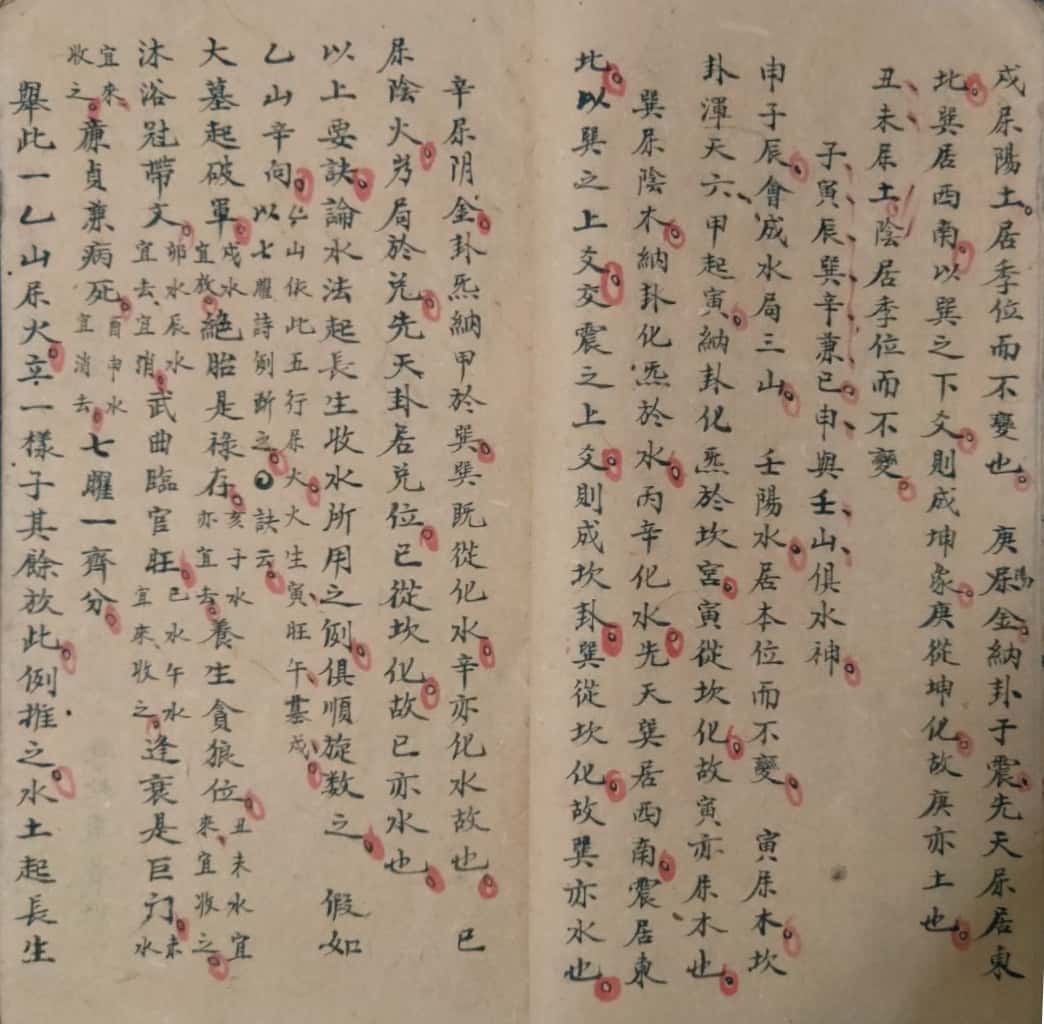 戍屬陽土居季位而不變也 庚屬陽金納卦于震先天屬居東
北巽居西南以巽之下爻則成坤象庚從坤化故庚亦土也
丑未屬土陰居季位而不變
子寅辰巽辛兼巳申與壬山俱水神
申子辰會成水局三山 壬陽水居本位而不變 寅屬木坎
卦渾天六甲起寅納卦化炁於坎宮寅從坎化故寅亦屬木也
巽屬陰木納卦化炁於水丙辛化水先天巽居西南震居東
北以巽之上爻交震之上爻則成坎卦巽從坎化故巽亦水也
辛屬阴金卦炁納甲於巽巽既從化水辛亦化水故也 巳
屬陰火为局於兌先天卦居兌位巳從坎化故巳亦水也
以上要訣論水法起長生收水所用之例俱順旋数之 假如
乙山辛向 仁山依此五行屬火火生寅旺午墓戍 以七曜詩例斷之 訣云
大墓起破軍 戍水宜放 絕胎是祿存 亥子水亦宜去 養生貪狼位 丑未水宜來宜收之
沐浴冠帶文 卯水辰水宜去宜消 武曲臨官旺 巳水午水宜來收之 逢衰是巨门 未水
宜來收之 廉貞兼病死 酉申水宜消去 七曜一齊分
舉此一乙山屬火立一樣子其餘放此例推之水土起長生